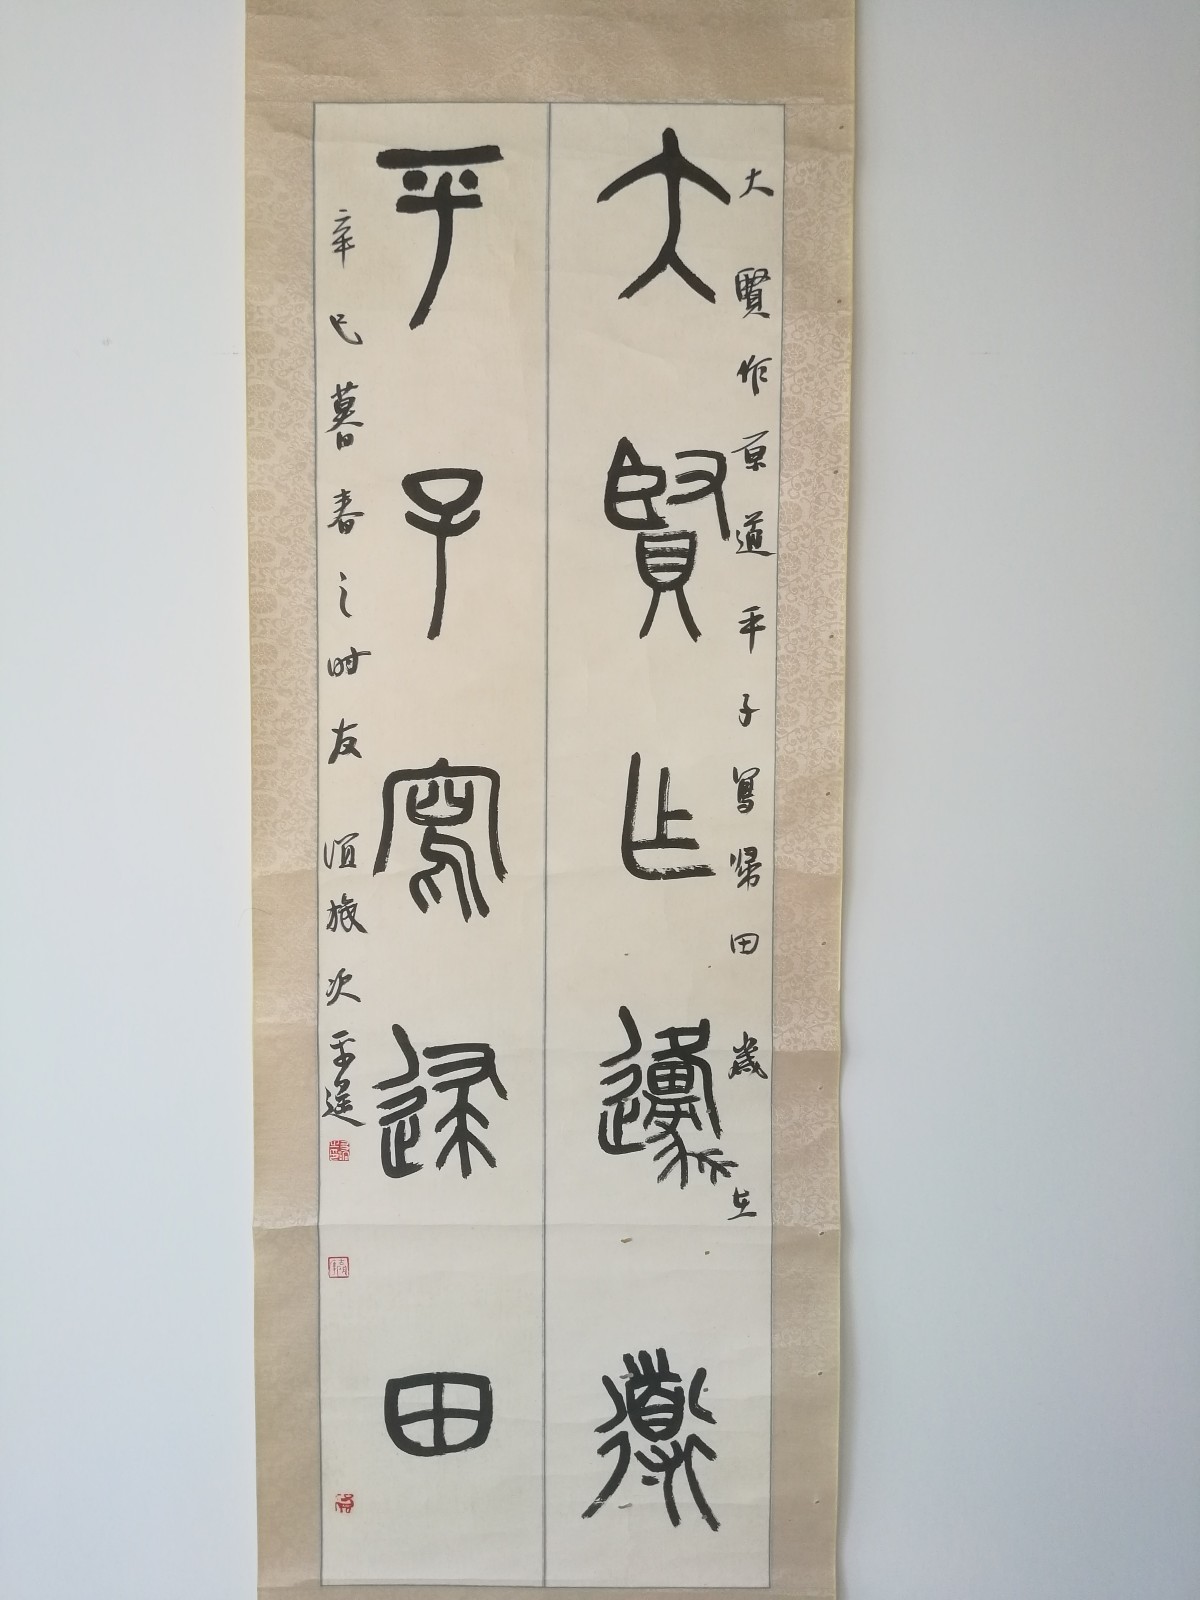 大賢作原道平子寫歸田歲在
大賢乍邍道
平子寫歸田
辛巳暮春之时友谊旅次